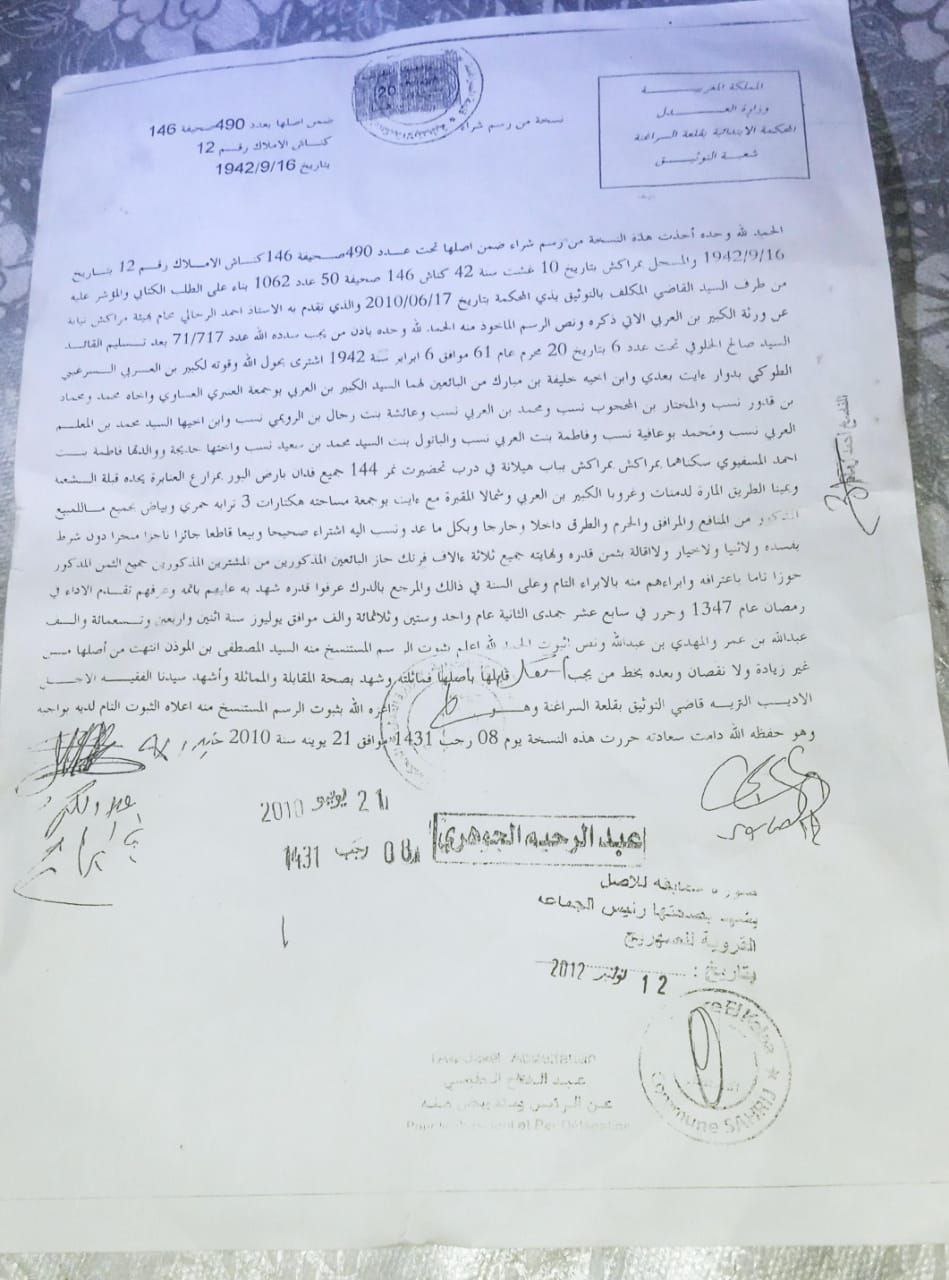 المملكة المغربية
وزارة العدل
المحكمة الابتدائية بقلعة السراغنة
شعبة التوثيق
نسخة من رسم شراء
ضمن اصلها بعدد 490 صحيفة 146
كناش الاملاك رقم 12
بتاريخ 1942/9/16
الحمد لله وحده أخذت هذه النسخة من رسم شراء ضمن اصلها تحت عدد 490 صحيفة 146 كناش الاملاك رقم 12 بتاريخ
1942/9/16 والمسجل بمراكش بتاريخ 10 غشت سنة 42 كناش 146 صحيفة 50 عدد 1062 بناء على الطلب الكتابي والمؤشر عليه
من طرف السيد القاضي المكلف بالتوثيق بذي المحكمة بتاريخ 2010/06/17 والذي تقدم به الاستاذ احمد الرحالي محام بهيئة مراكش نيابة
عن ورثة الكبير بن العربي الاتي ذكره ونص الرسم الماخوذ منه الحمد لله وحده باذن من يجب سدده الله عدد 71/717 بعد تسليم القائد
السيد صالح تحت عدد 6 بتاريخ 20 محرم عام 61 موافق 6 ابراير سنة 1942 اشترى بحول الله وقوته لكبير بن العربي السرغيني
الطوكي بدوار ءايت بعدي وابن اخيه خليفة بن مبارك من البائعين لهما السيد الكبير بن العربي بوجمعة العمري العساوي واخاه محمد ومحماد
بن قدور نسب والمختار بن المحجوب نسب ومحمد بن العربي نسب وعائشة بنت رحال بن الرويمي نسب وابن اخيها السيد محمد بن المعلم
العربي نسب ومحمد بوعافية نسب وفاطمة بنت العربي نسب والباتول بنت السيد محمد بن سعيد نسب واختها خديجة ووالدتها فاطمة بنت
احمد المسفيوي سكناهما بمراكش بمراكش بباب هيلانة في درب تحضيرت نمر 144 جميع فدان بارض البور بمزارع العنابرة يحده قبلة الشعبة
ويمينا الطريق المارة لدمنات وغروبا الكبير بن العربي وشمالا المقبرة مع ءايت بوجمعة مساحته هكتارات 3 ترابه حمري وبياض بجميع ماللمبيع
المذكور من المنافع والمرافق والحرم والطرق داخلا وخارجا وبكل ما عد ونسب اليه اشتراء صحيحا وبيعا قاطعا جائزا ناجزا منجزا دون شرط
يفسده ولاثنيا ولاخيار ولااقالة بثمن قدره ونهايته جميع ثلاثة ءالاف فرنك حاز البائعين المذكورين من المشترين المذكورين جميع الثمن المذكور
حوزا تاما باعترافه وابراءهم منه بالابراء التام وعلى السنة في ذالك والمرجع بالدرك عرفوا قدره شهد به عليهم باتمه وعرفهم تقدم الاداء في
رمضان عام 1347 وحرر في سابع عشر جمدى الثانية عام واحد وستين وثلاثمائة والف موافق يوليوز سنة اثنين واربعين وتسعمائة والف
عبدالله بن عمر والمهدي بن عبدالله ونص الثبوت الحمد لله اعلم بثبوت الرسم المستنسخ منه السيد المصطفى بن الموذن انتهت من أصلها
غير زيادة ولا نقصان وبعده بخط من يجب قابلها بأصلها فماثلته وشهد بصحة المقابلة والمماثلة وأشهد سيدنا الفقيه الاجل
الاديب التزيه قاضي التوثيق بقلعة السراغنة وهو اعزه الله بثبوت الرسم المستنسخ منه اعلاه الثبوت التام لديه بواجبه
وهو حفظه الله دامت سعادته حررت هذه النسخة يوم 08 رجب 1431 موافق 21 يونيه سنة 2010
21 يونيو 2010
08 رجب 1431
عبد الرحيم الجوهري
صورة مطابقة للاصل
يشهد بصحتها رئيس الجماعة
القروية للصهريج
بتاريخ : 12 نونبر 2012
عن الرئيس وبتفويض منه
Commune SAHRIJ